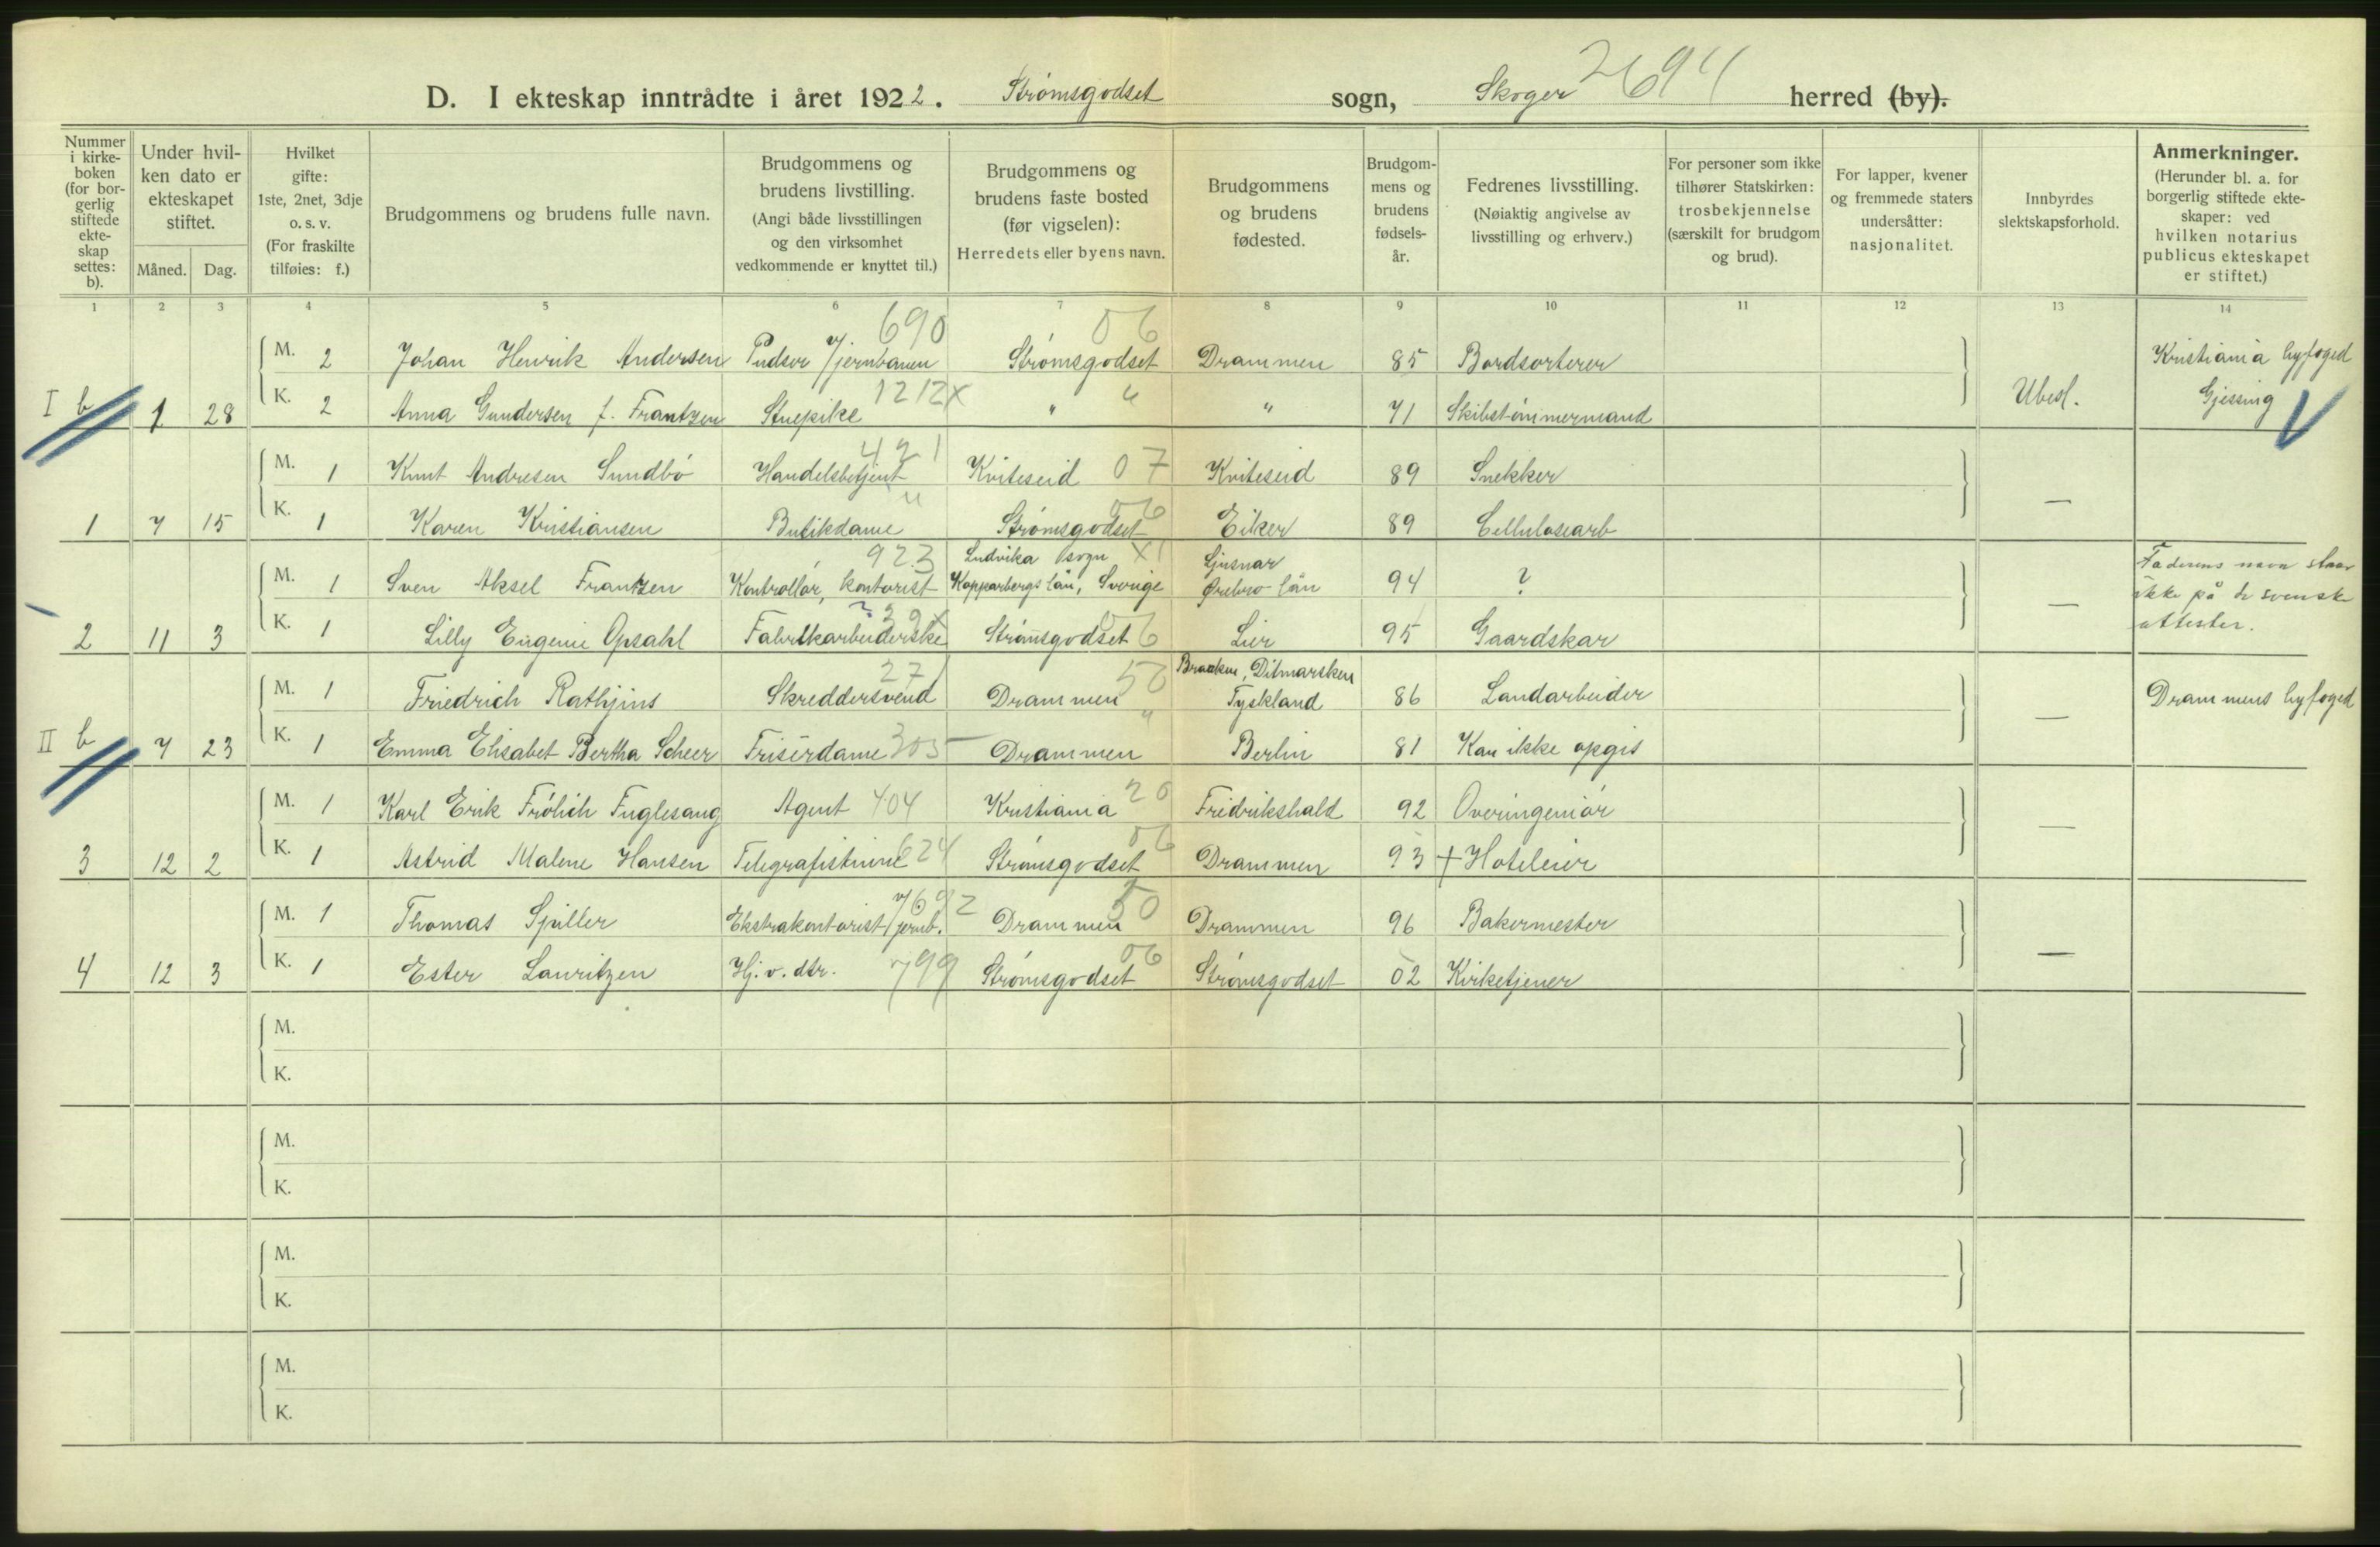 D. I ekteskap inntrådte i året 1922. Strømsgodset sogn, Skoger 2694 herred (by).
Nummer i kirkeboken (for borgerlig stiftede ekteskap settes: b).
Under hvilken dato er ekteskapet stiftet.
Måned. Dag.
Hvilket gifte: 1ste, 2net, 3dje o. s. v. (For fraskilte tilføies: f.)
Brudgommens og brudens fulle navn.
Brudgommens og brudens livstilling. (Angi både livsstillingen og den virksomhet vedkommende er knyttet til.)
Brudgommens og brudens faste bosted (før vigselen): Herredets eller byens navn.
Brudgommens og brudens fødested.
Brudgommens og brudens fødselsår.
Fedrenes livsstilling. (Nøiaktig angivelse av livsstilling og erhverv.)
For personer som ikke tilhører Statskirken: trosbekjennelse (særskilt for brudgom og brud).
For lapper, kvener og fremmede staters undersåtter: nasjonalitet.
Innbyrdes slektskapsforhold.
Anmerkninger. (Herunder bl. a. for borgerlig stiftede ekteskaper: ved hvilken notarius publicus ekteskapet er stiftet.)
1 2 3 4 5 6 7 8 9 10 11 12 13 14
690 06
M. 2 Johan Henrik Andersen Pudser v/jernbanen Strømsgodset Drammen 85 Bordsorterer Kristiania byfoged
1212x
I b 1 28 K. 2 Anna Gundersen f. Frantzen Stuepike " " " 71 Skibstømmermand Ubesl. Gjessing
421
M. 1 Knut Andresen Sundbö Handelsbetjent Kviteseid 07 Kviteseid 89 Snekker
" 06
1 7 15 K. 1 Karen Kristiansen Butikdame Strømsgodset Eiker 89 Cellulosearb —
923 Ludvika sogn X1 Ljusnar Faderens navn staar
M. 1 Sven Aksel Frantzen Kontrollør, kontorist Kopparbergs län, Sverige Ørebro län 94 ? ikke på de svenske
39x
2 11 3 K. 1 Lilly Eugenie Opsahl Fabrikkarbeiderske Strømsgodset 06 Lier 95 Gaardskar — attester.
27 50 Braaken, Ditmarsken
M. 1 Friedrich Rathjins Skreddersvend Drammen Tyskland 86 Landarbeider Drammens byfoged
II b 7 23 K. 1 Emma Elisabet Bertha Scheer Frisérdame 305 Drammen " Berlin 81 Kan ikke opgis —
M. 1 Karl Erik Frölich Fuglesang Agent 404 Kristiania 20 Fredrikshald 92 Overingeniør
3 12 2 K. 1 Astrid Malene Hansen Telegrafistinne 624 Strømsgodset 06 Drammen 93 + Hoteleier —
7692 50
M. 1 Thomas Spiller Ekstrakontorist v/jernb. Drammen Drammen 96 Bakermester
4 12 3 K. 1 Ester Lauritzen Hj. v. dtr. 799 Strømsgodset 06 Strømsgodset 02 Kirketjener —
M.
K.
M.
K.
M.
K.
M.
K.